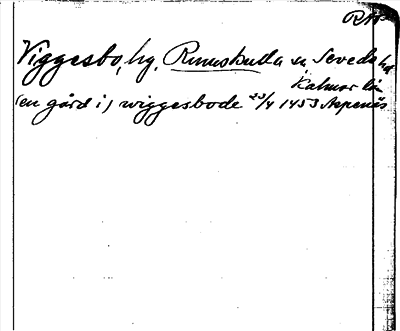 RAP
Viggesbo, hg, Rumskulla sn Sevede hd
Kalmar län
(en gård i) wiggesbode 23/4 1453 Aspenäs